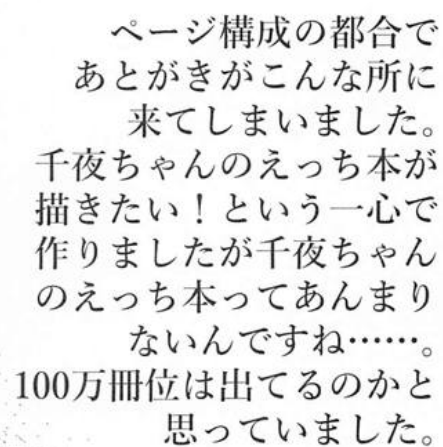 ページ構成の都合で
あとがきがこんな所に
来てしまいました。
千夜ちゃんのえっち本が
描きたい！という一心で
作りましたが千夜ちゃん
のえっち本ってあんまり
ないんですね……。
100万冊位は出てるのかと
思っていました。